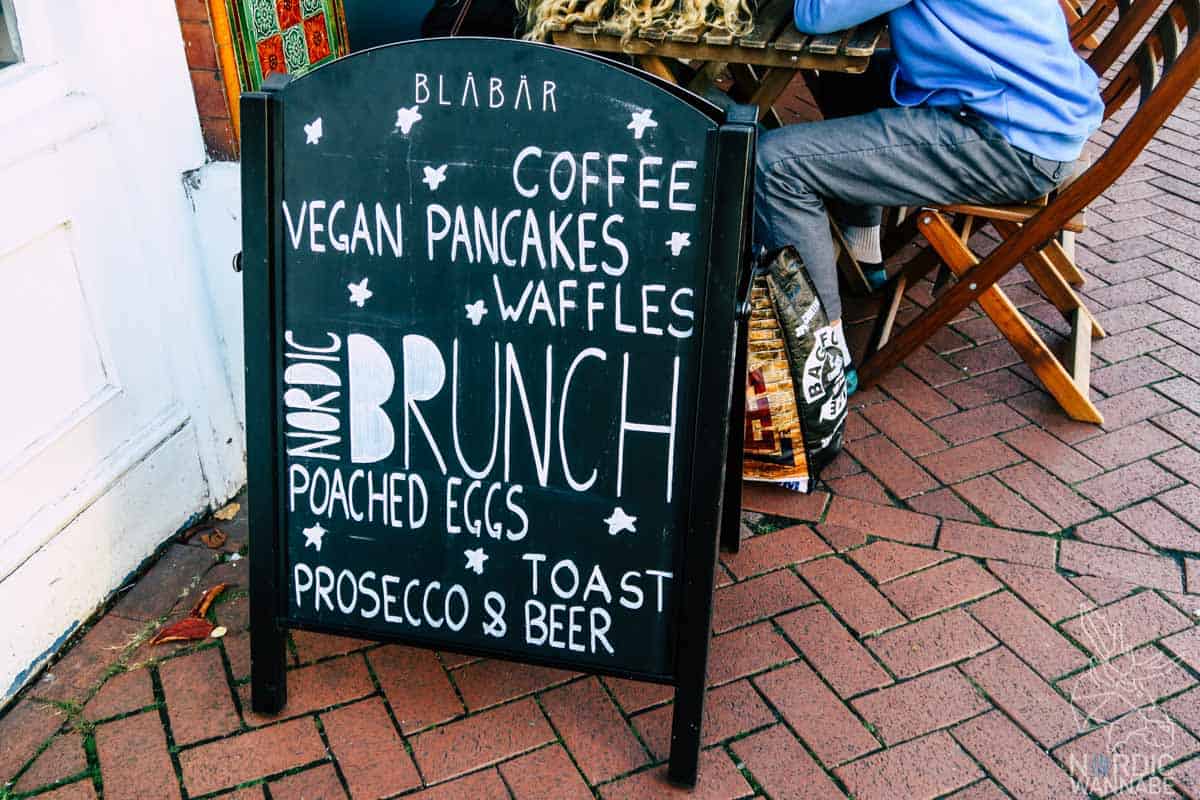 BLÅBÄR
COFFEE
VEGAN PANCAKES
WAFFLES
NORDIC
BRUNCH
POACHED EGGS
TOAST
PROSECCO & BEER
NORDIC
WANNABE